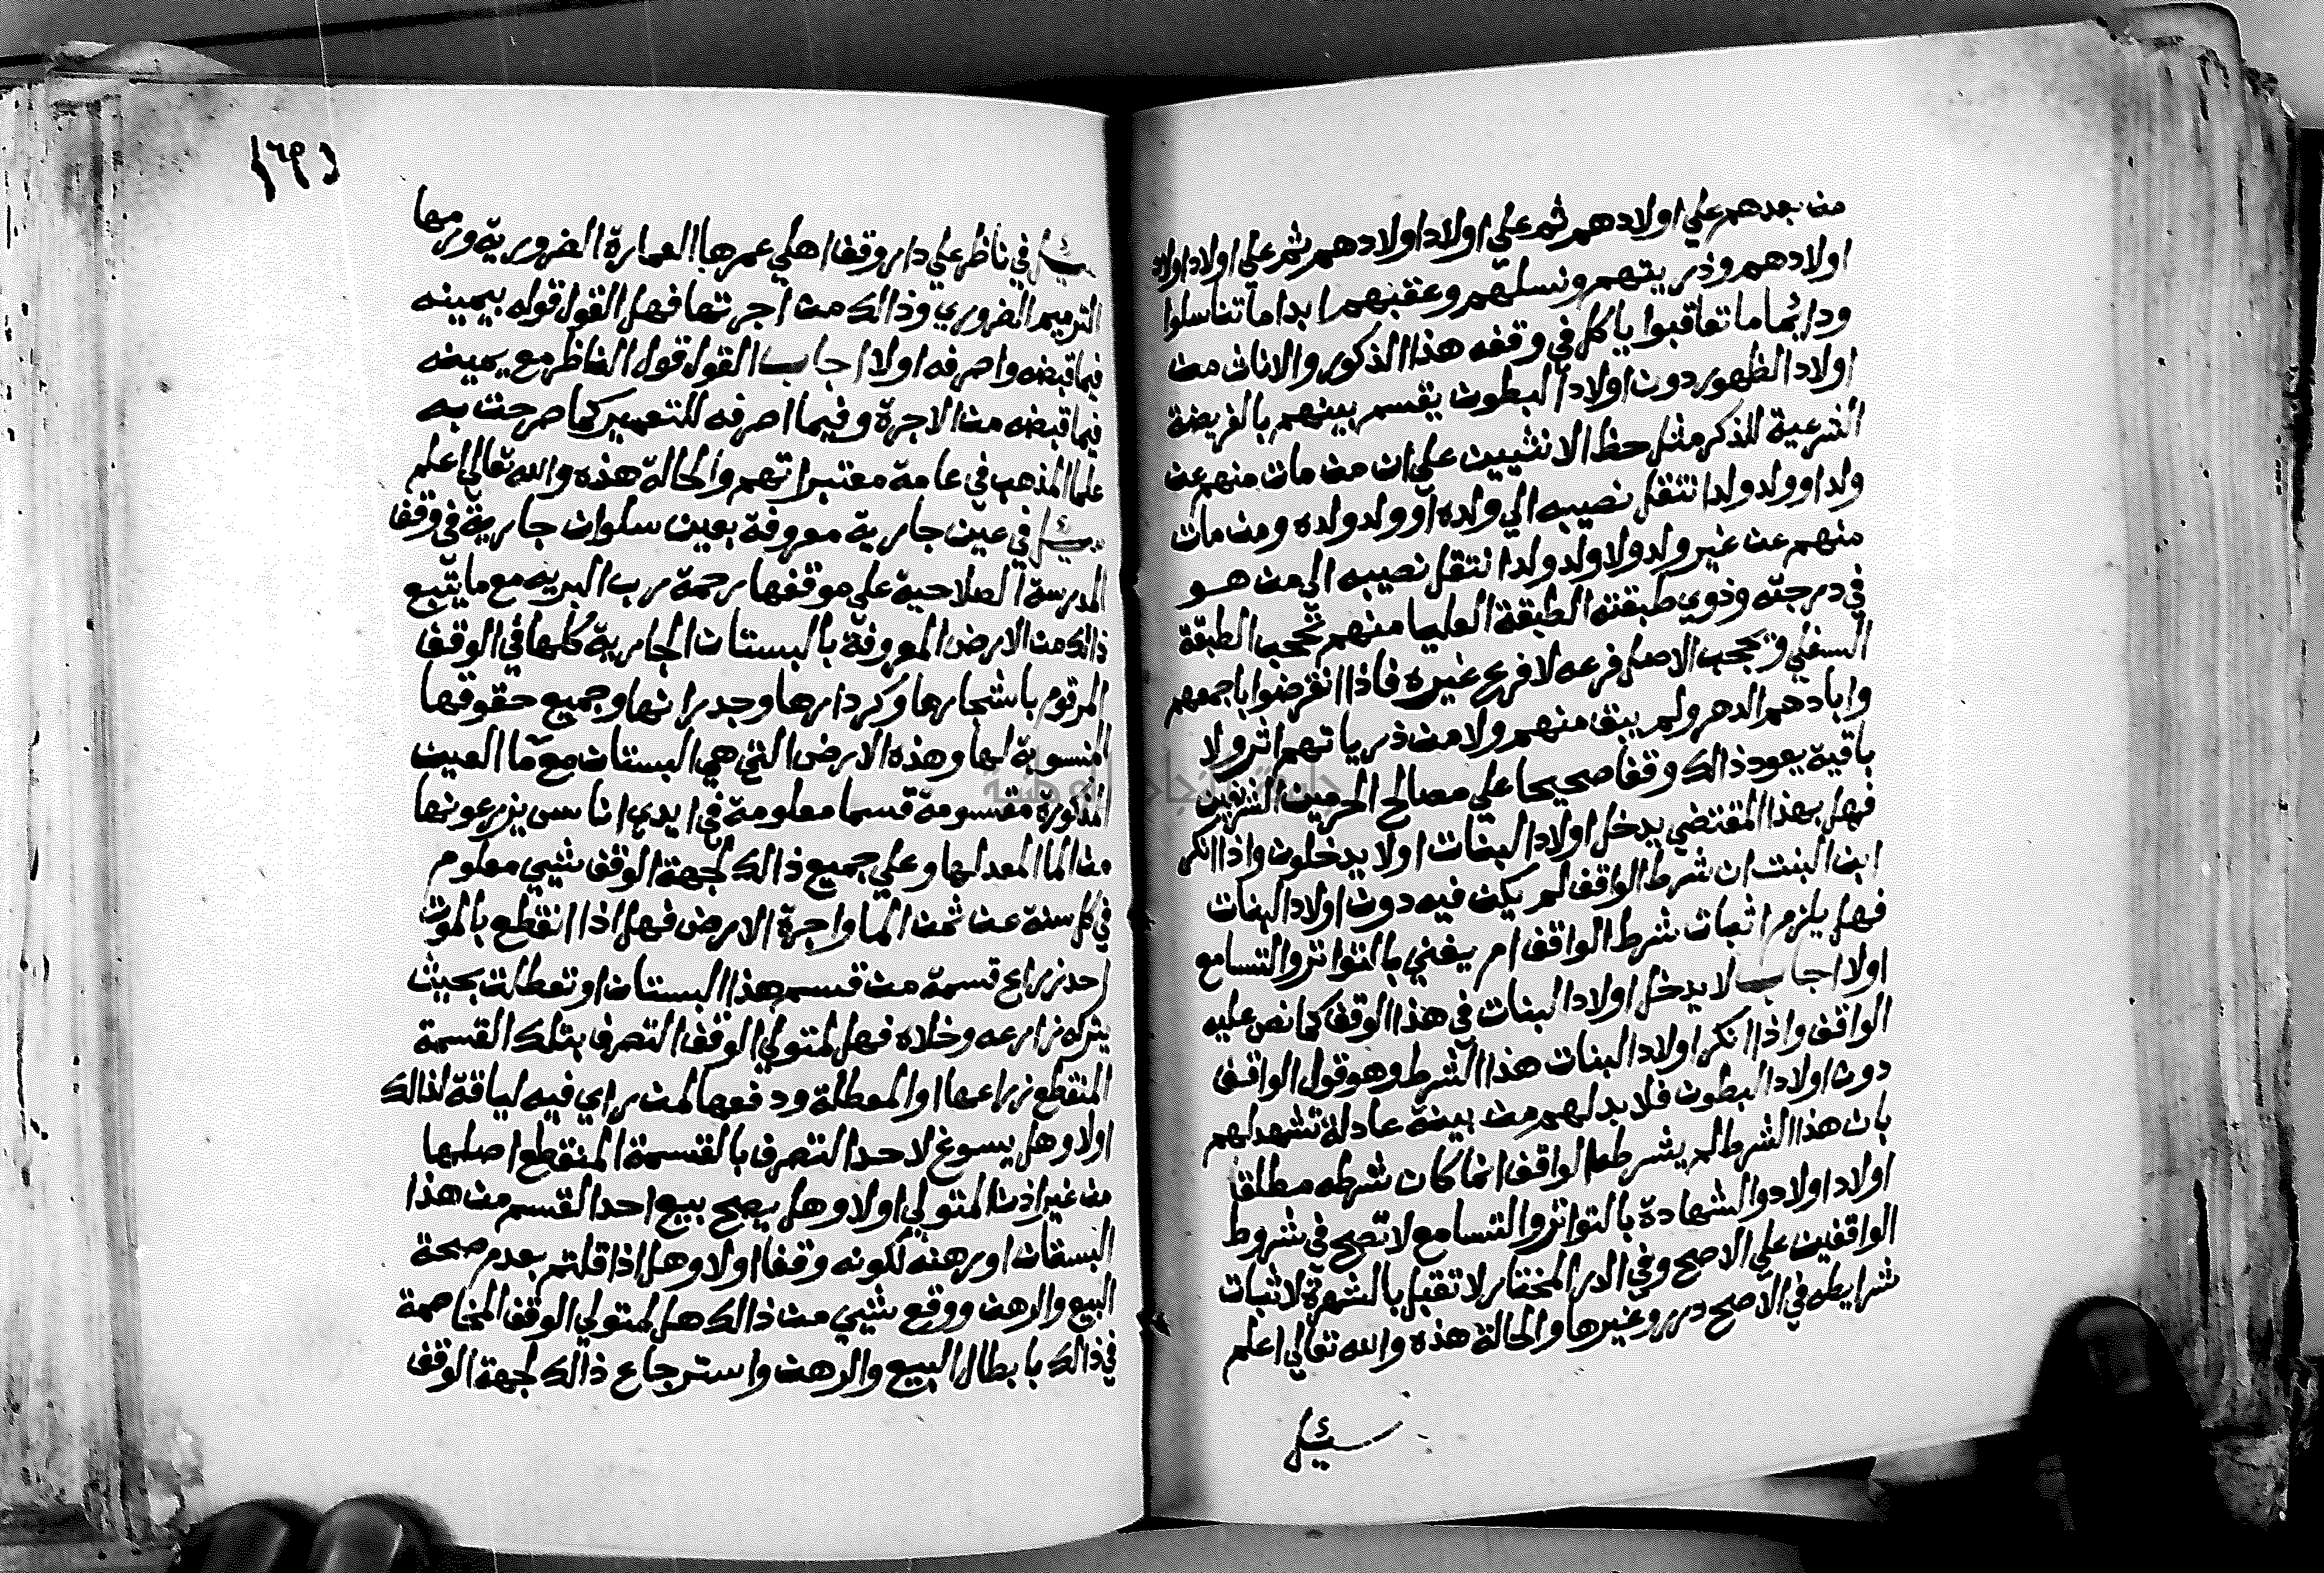 من بعدهم علي اولادهم ثم علي اولاد اولادهم ثم علي اولاد اولاد
اولادهم وذريتهم ونسلهم وعقبهم ابدا ما تناسلوا
ودايما ما تعاقبوا ياكل في وقفه هذا الذكور والاناث من
اولاد الظهور دون اولاد البطون يقسم بينهم بالفريضة
الشرعية للذكر مثل حظ الانثيين علي ان من مات منهم عن
ولد او ولد ولد انتقل نصيبه الي ولده او ولد ولده ومن مات
منهم عن غير ولد ولا ولد ولد انتقل نصيبه الي من هو
في درجته وذوي طبقته الطبقة العليا منهم تحجب الطبقة
السفلي وتحجب الاصل فرعه لا فرع غيره فاذا انقرضوا باجمعهم
وابادهم الدهر ولم يبق منهم ولا من ذرياتهم اثر ولا
باقية يعود ذالك وقفا صحيحا علي مصالح الحرمين الشريفين
فهل بهذا المقتضي يدخل اولاد البنات اولا يدخلون واذا انكر
ابن البنت ان شرط الواقف لم يكن فيه دون اولاد البنات
فهل يلزم اثبات شرط الواقف ام يغني بالتواتر والتسامع
اولا اجاب لا يدخل اولاد البنات في هذا الوقف كما نص عليه
الواقف واذا انكر اولاد البنات هذا الشرط وهو قول الواقف
دون اولاد البطون فلا بد لهم من بينة عادلة تشهد لهم
بان هذا الشرط لم يشرطه الواقف انما كان شرطه مطلقا
اولاد اولاد والشهادة بالتواتر والتسامع لا تصح في شروط
الواقفين علي الاصح وفي الدر المختار لا تقبل بالشهرة لاثبات
شرايطه في الاصح درر وغيرها والحالة هذه والله تعالي اعلم
سئل
١٦٩
سئل في ناظر علي دار وقف اهلي عمرها العمارة الضرورية ورمها
الترميم الضروري وذالك من اجرتها فهل القول قوله بيمينه
فيما قبضه واصرفه اولا اجاب القول قول الناظر مع يمينه
فيما قبضه من الاجرة وفيما اصرفه للتعمير كما صرحت به
علما المذهب في عامة معتبراتهم والحالة هذه والله تعالي اعلم
سئل في عين جارية معروفة بعين سلوان جارية في وقف
المدرسة الصلاحية علي موقفها رحمة رب البريه مع ما يتبع
ذالك من الارض المعروفة بالبستان الجارية كلها في الوقف
المرقوم باشجارها وكردارها وجدرانها وجميع حقوقها
المنسوبة لها وهذه الارض التي هي البستان مع ما العين
المذكورة مقسومة قسما معلومة في ايدي اناس يزرعونها
من الما المعد لها وعلي جميع ذالك لجهة الوقف شيي معلوم
في كل سنة عن ثمن الما واجرة الارض فهل اذا انقطع بالموت
احد زراع قسمة من قسم هذا البستان او تعطلت بحيث
يتركه زارعه وخلاه فهل لمتولي الوقف التصرف بتلك القسمة
المنقطع زراعها او المعطلة ودفعها لمن راي فيه لياقة لذالك
اولا وهل يسوغ لاحد التصرف بالقسمة المنقطع اصلها
من غير اذن المتولي اولا وهل يصح بيع احد القسم من هذا
البستان او رهنه لكونه وقفا اولا وهل اذا قلتم بعدم صحة
البيع والرهن ووقع شيي من ذالك هل لمتولي الوقف المخاصمة
في ذالك بابطال البيع والرهن واسترجاع ذالك لجهة الوقف